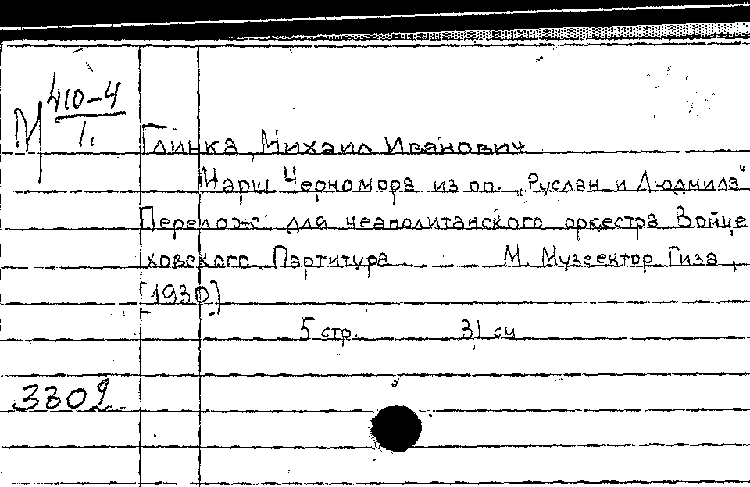 М 410-4
1.
Глинка, Михаил Иванович
Марш Черномора из оп. „Руслан и Людмила"
Перелож для неаполитанского оркестра Войце
ховского Партитура М. Музсектор Гиза,
[1930]
5 стр. 31 см
3302